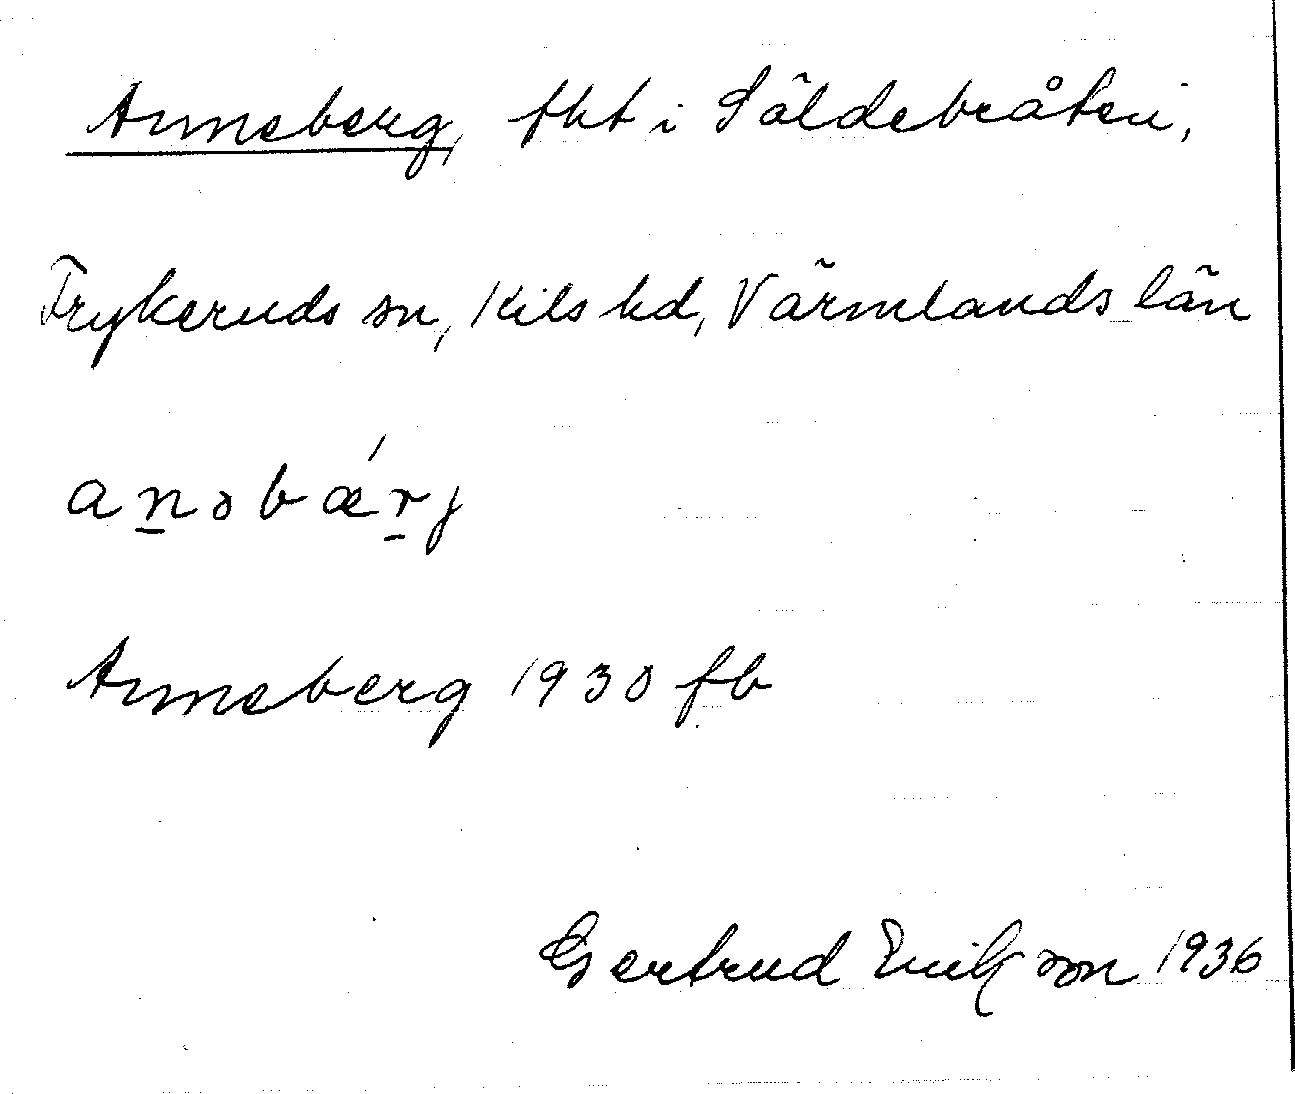 Anneberg, fht i Säldebråten,
Frykeruds sn, Kils hd, Värmlands län
a n̲ ə b ǽ r̲ j
Anneberg 1930 fb
Gertrud Erikson 1936